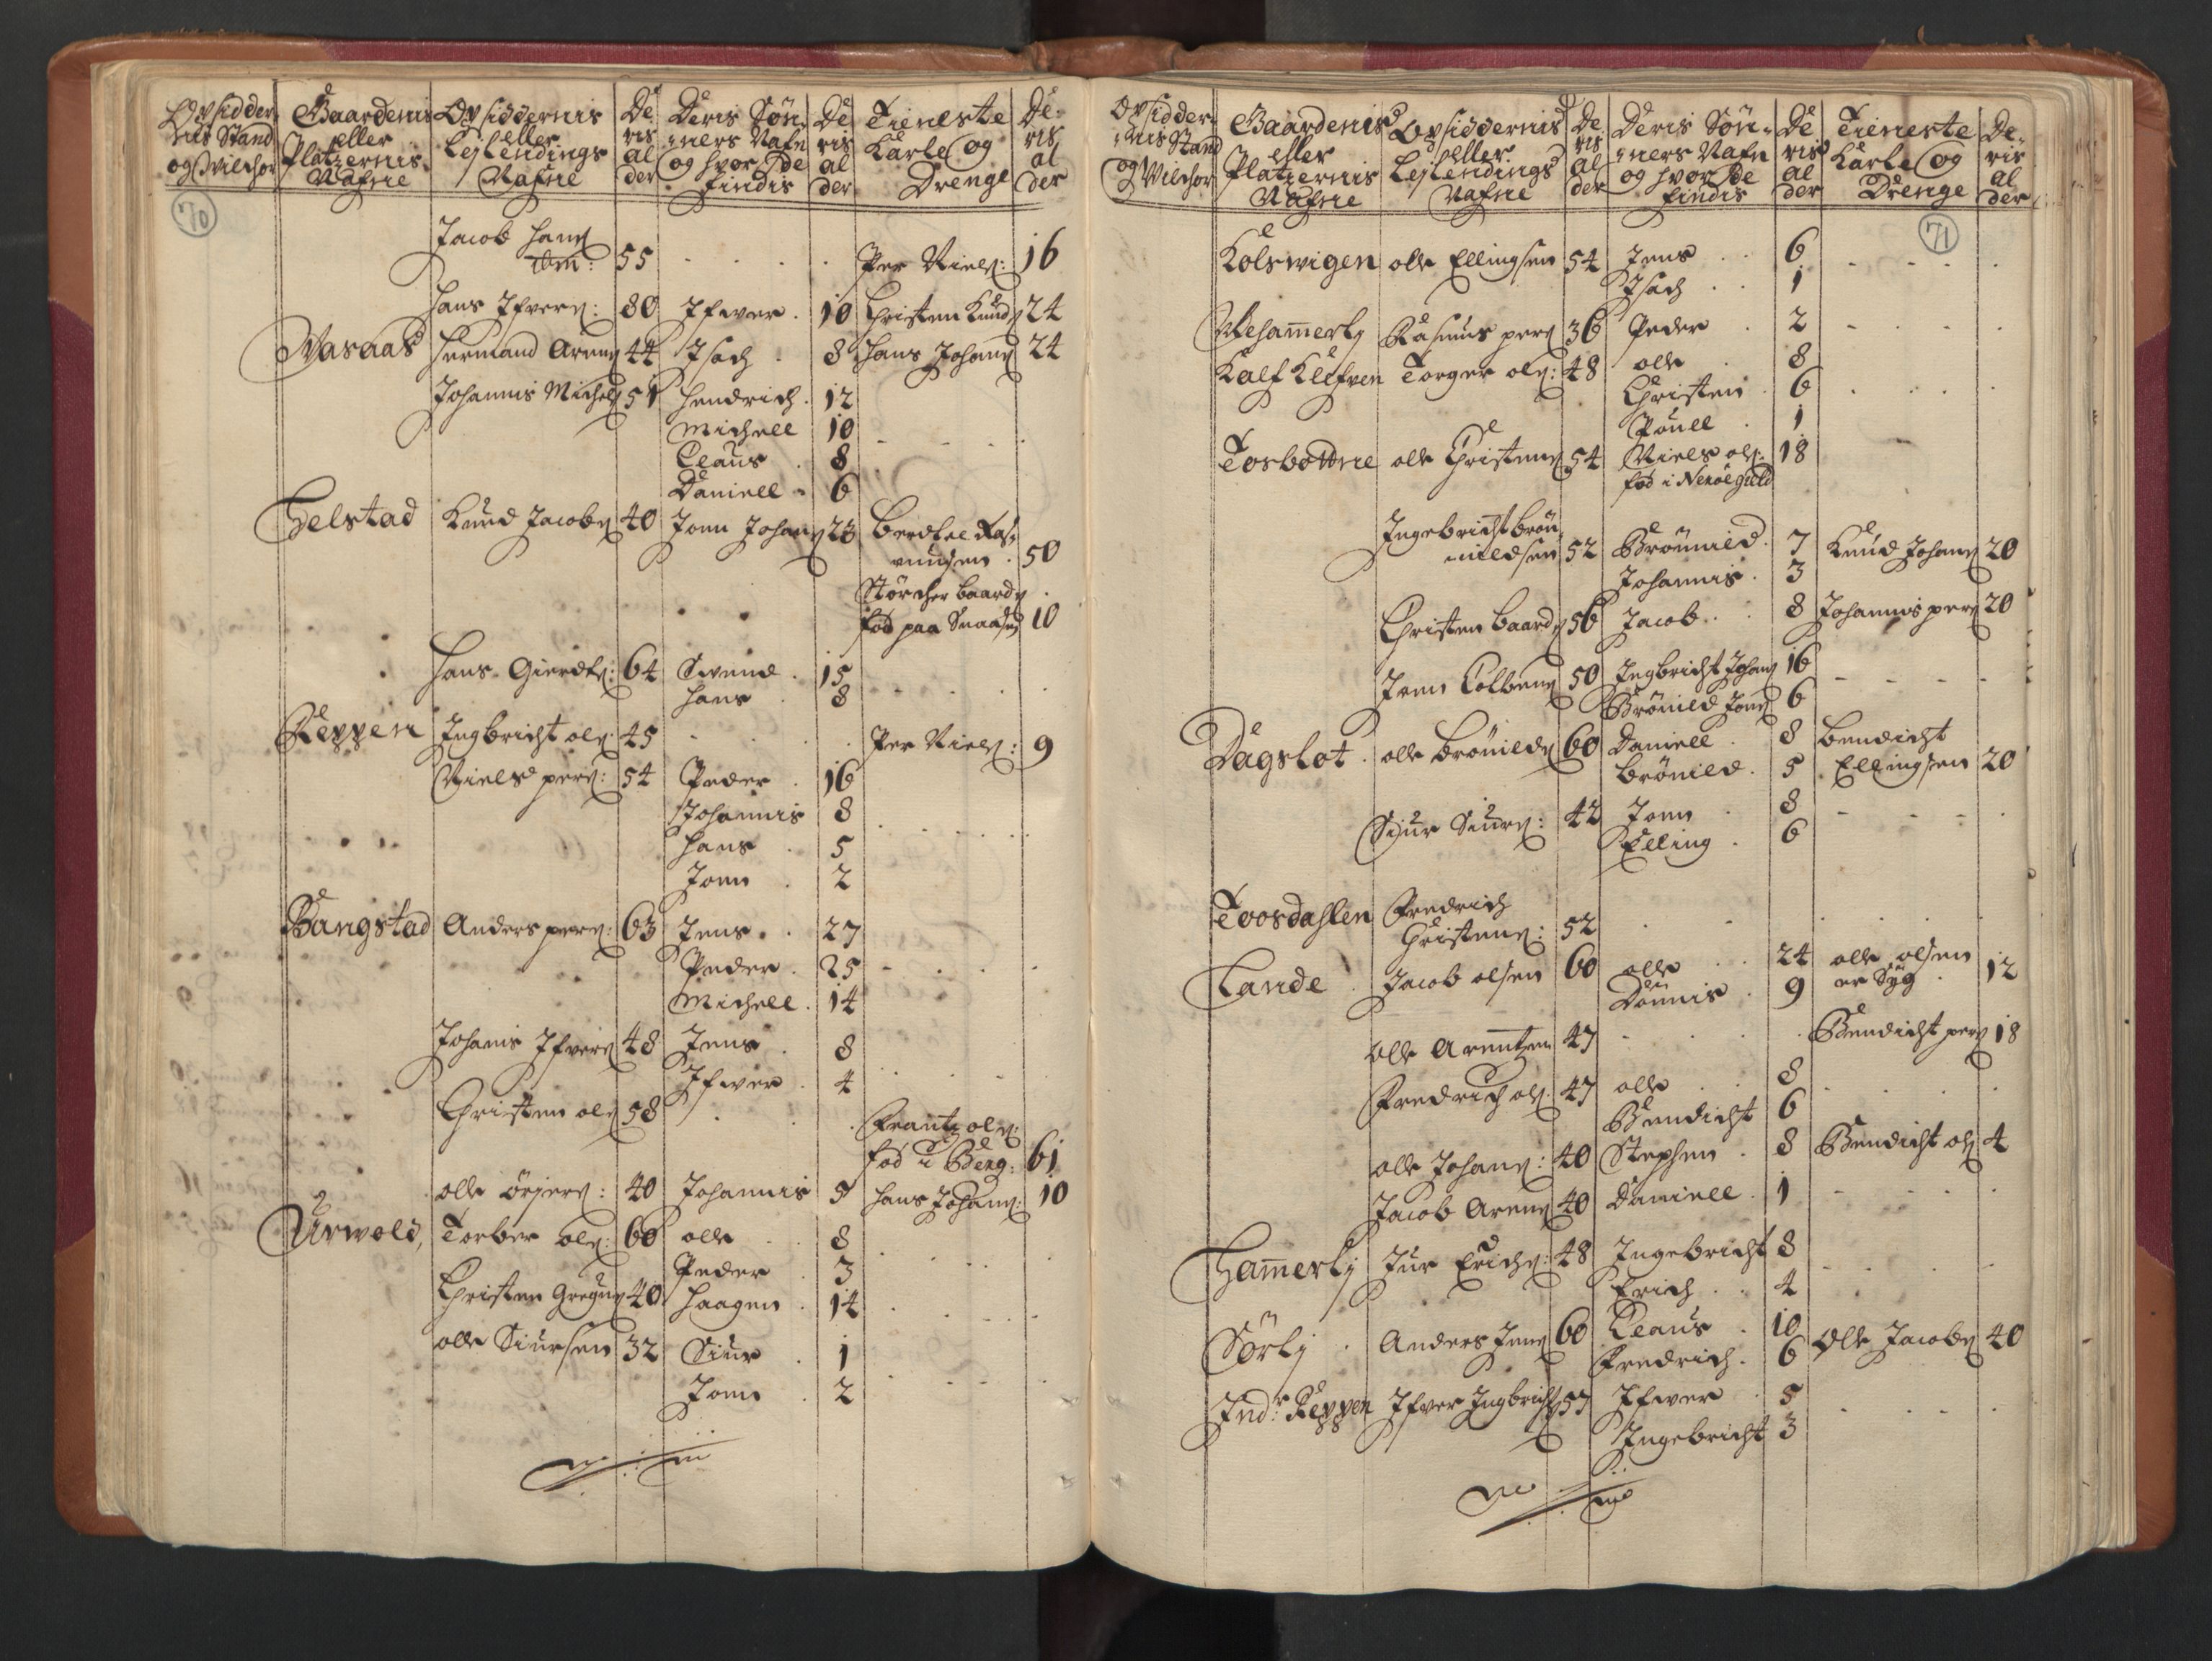 Opsidder-
nis Stand
og Wilchor
Gaardenis
eller
Platzernis
Nafne
Opsiddernis
eller
Lejlendings
Nafne
De
ris
al
der
Deris Søn-
ners Nafn
og hvor de
findis
De
ris
al
der
Tieneste
Karle og
Drenge
De-
ris
al
der
70
Jacob Hans
55 Per Niels: 16
Hans Ifvers: 80 Ifwer 10 Christen Knuds 24
Vasaas Hermand Arens 44 Isach 8 Hans Johans 24
Johannis Michels 51 Hendrich 12
Michell 10
Claus 8
Daniell 6
Helstad Knud Jacobs 40 Jonn Johans 23 Berdtel Ras-
mussen 50
Størcher Baards
fød paa Snaasen 10
Hans Gierdts: 64 Swend 15
Hans 8
Reppen Ingbricht ols: 45 Per Niels: 9
Niels pers: 54 Peder 16
Johannis 8
Hans 5
Jonn 2
Bangstad Anders pers: 63 Jens 27
Peder 25
Michell 14
Johanis Ifvers 48 Jens 8
Ifwer 4
Christen ols 58 Frantz ols:
fød i Berg: 61
olle Ørjers: 40 Johannis 5 Hans Johans: 10
Urwold, Torber ols: 60 olle 8
Peder 3
Christen Gregus 40 Haagen 14
olle Siursen 32 Siur 1
Jonn 2
Opsidder-
nis Stand
og Wilchor
Gaardenis
eller
Platzernis
Nafne
Opsiddernis
eller
Lejlendings
Nafne
De
ris
al
der
Deris Søn-
ners Nafn
og hvor de
findis
De
ris
al
der
Tieneste
Karle og
Drenge
De-
ris
al
der
71
Kolswigen olle Ellingsen 54 Jens 6
Isach 1
Wehamerly Rasmus pers 36 Peder 2
Kalf Klefven Torger ols: 48 olle 8
Christen 6
Pouell 1
Tosbottne olle Christens 54 Niels ols: 18
fød i Nerøe gield
Ingebricht Brøn-
nildsen 52 Brønnild 7 Knud Johans 20
Johannis 3
Christen Baards 56 Jacob 8 Johannis pers 20
Jenn Colbens 50 Ingbricht Johans 16
Brønild Jons 6
Dagslot olle Brønilds 60 Daniell 8 Bendicht
Brønild 5 Ellingsen 20
Sjur Siurs: 42 Jonn 8
Elling 6
Toosdahlen Fredrich
Christens: 52
Lande Jacob olsen 60 olle 24 olle olsen
Dønnis 9 er Syg 12
olle Arentzen 47 Bendicht pers 18
Fredrich ols. 47 olle 8
Bendicht 6
olle Johans: 40 Stephen 8 Bendicht ols 4
Jacob Arens 40 Daniell 1
Hamerly Jur Erichs: 48 Ingebricht 8
Erich 4
Sørly Anders Jens 60 Claus 10 Olle Jacobs 40
Fredrich 6
Ind: Reppen Ifver Ingbrichts 57 Ifwer 5
Ingebricht 3